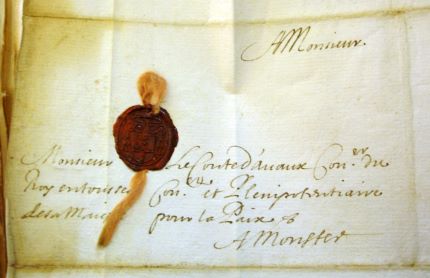 A Monsieur.
Monsieur Le Conte d'avaux Con.er du
Roy en tous ses Con.els et Plenipotentiaire
de sa Mai pour la Paix
A Monster